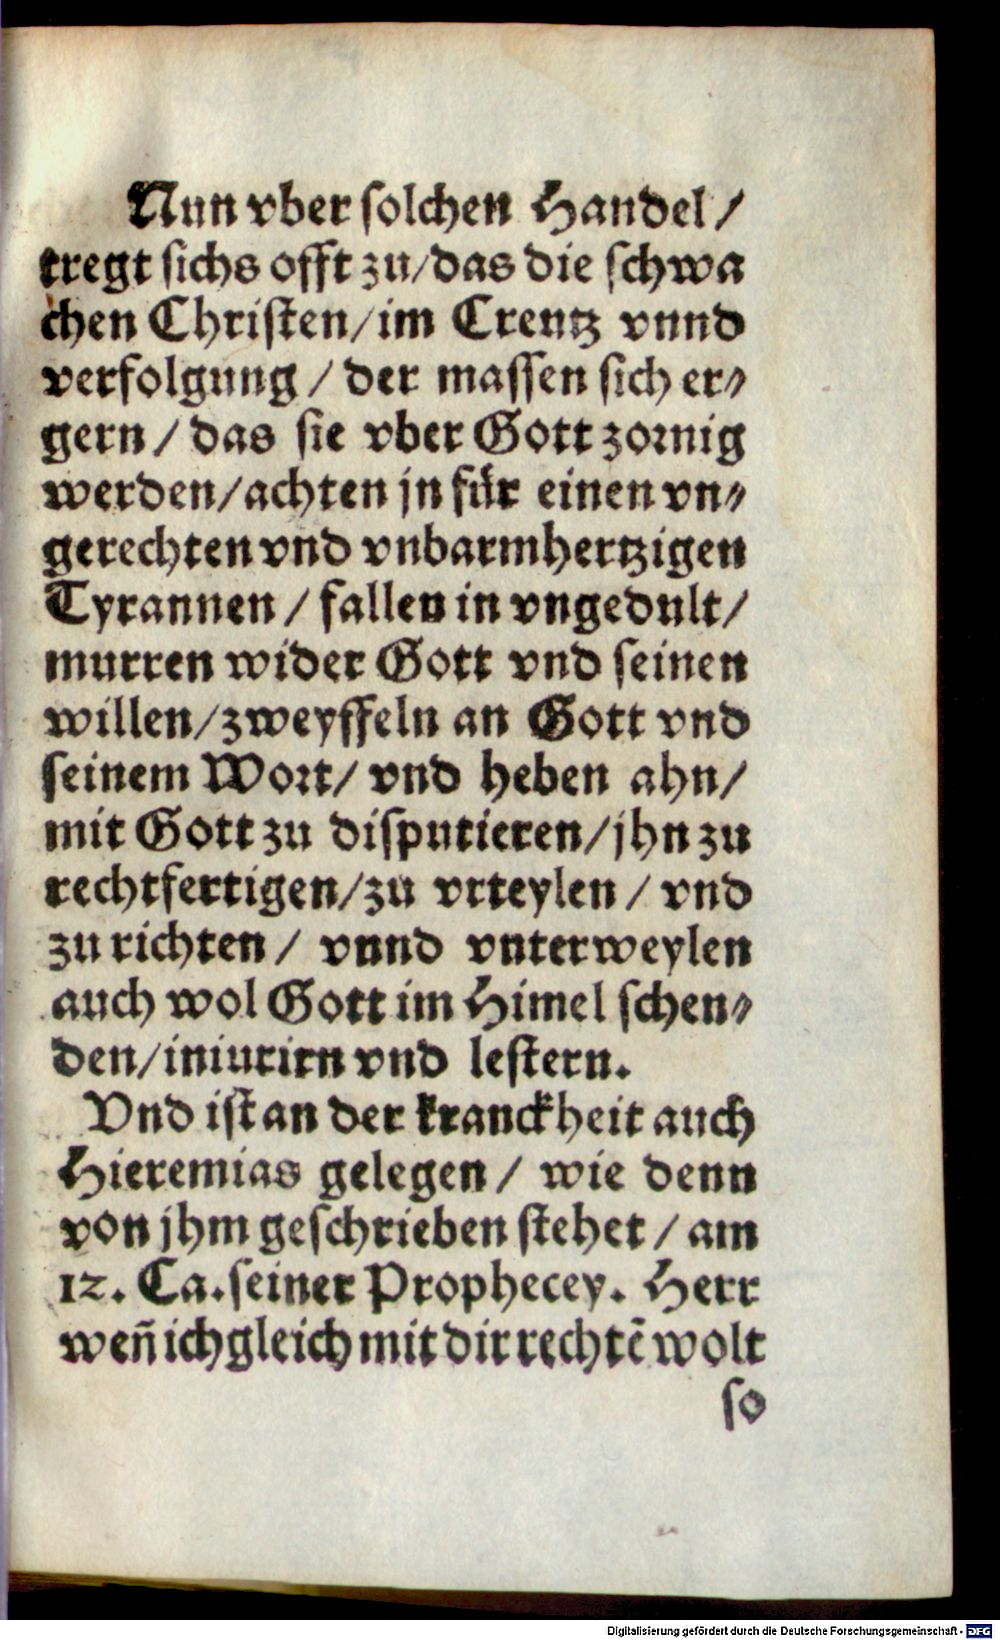 Nun vber solchen Handel /
tregt sichs offt zu / das die schwa
chen Christen / im Creutz vnnd
verfolgung / der massen sich er⸗
gern / das sie vber Gott zornig
werden / achten jn für einen vn⸗
gerechten vnd vnbarmhertzigen
Tyrannen / fallen in vngedult /
murren wider Gott vnd seinen
willen / zweyffeln an Gott vnd
seinem Wort / vnd heben ahn /
mit Gott zu disputieren / jhn zu
rechtfertigen / zu vrteylen / vnd
zu richten / vnnd vnterweylen
auch wol Gott im Himel schen⸗
den / iniurirn vnd lestern.
Vnd ist an der kranckheit auch
Hieremias gelegen / wie denn
von jhm geschrieben stehet / am
12. Ca. seiner Prophecey. Herr
wen̄ ich gleich mit dir rechtē wolt
so
Digitalisierung gefördert durch die Deutsche Forschungsgemeinschaft - DFG